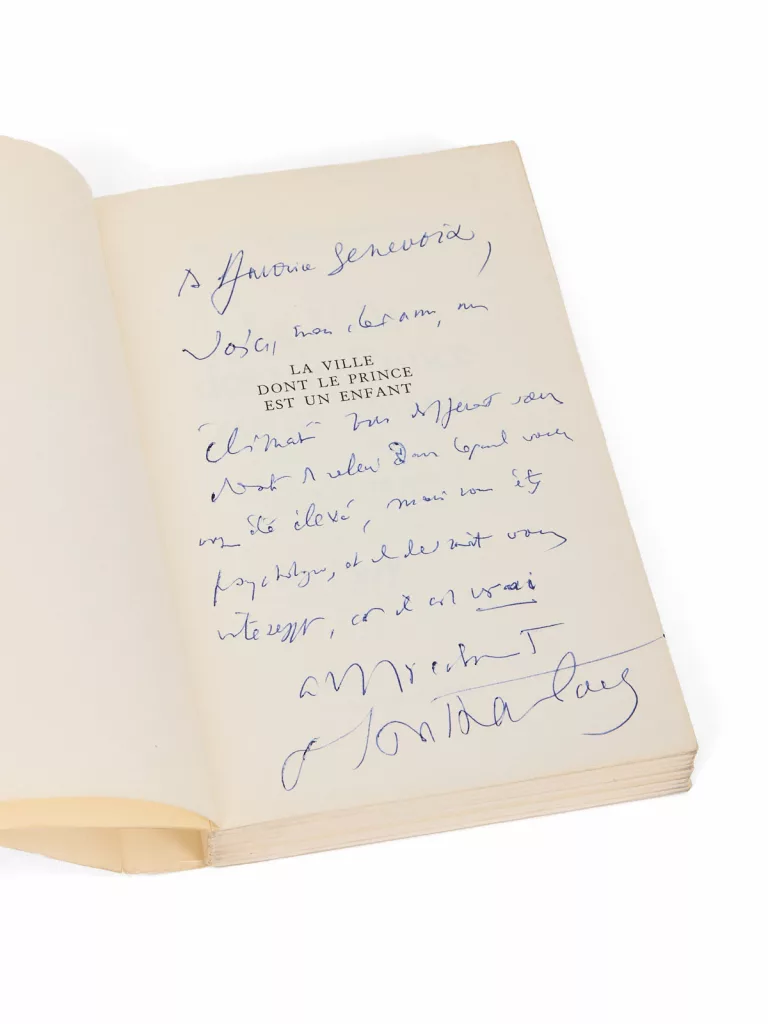 A Maurice Genevoix,
Voici, mon cher ami, un
LA VILLE
DONT LE PRINCE
EST UN ENFANT
"climat" bien différent sans
doute de celui dans lequel vous
avez été élevé, mais vous êtes
psychologue, et il devrait vous
intéresser, car il est vrai
amicalement
Montherlant